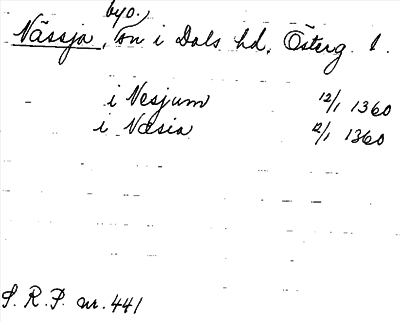 byo.
Nässja, sn i Dals hd, Österg. l.
i Nesjum 12/1 1360
i Næsia 12/1 1360
S. R. P. nr. 441